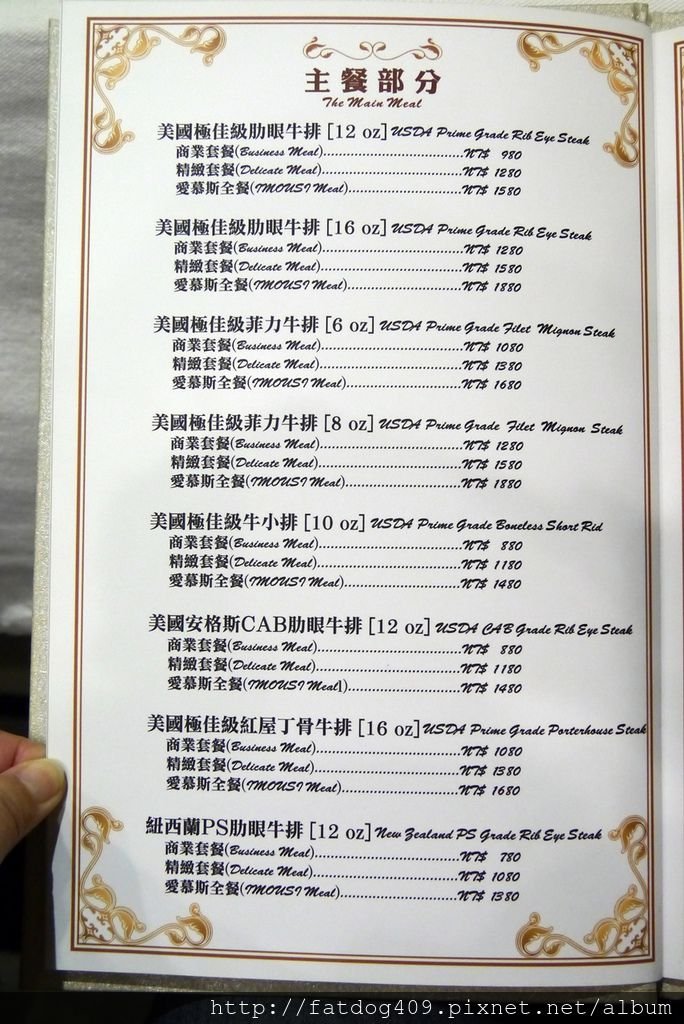 主餐部分
The Main Meal
美國極佳級肋眼牛排 [12 oz] USDA Prime Grade Rib Eye Steak
商業套餐(Business Meal)..................................NT$ 980
精緻套餐(Delicate Meal)..................................NT$ 1280
愛慕斯全餐(IMOUSI Meal)...........................NT$ 1580
美國極佳級肋眼牛排 [16 oz] USDA Prime Grade Rib Eye Steak
商業套餐(Business Meal)..................................NT$ 1280
精緻套餐(Delicate Meal)..................................NT$ 1580
愛慕斯全餐(IMOUSI Meal)...........................NT$ 1880
美國極佳級菲力牛排 [6 oz] USDA Prime Grade Filet Mignon Steak
商業套餐(Business Meal)..................................NT$ 1080
精緻套餐(Delicate Meal)..................................NT$ 1380
愛慕斯全餐(IMOUSI Meal)...........................NT$ 1680
美國極佳級菲力牛排 [8 oz] USDA Prime Grade Filet Mignon Steak
商業套餐(Business Meal)..................................NT$ 1280
精緻套餐(Delicate Meal)..................................NT$ 1580
愛慕斯全餐(IMOUSI Meal)...........................NT$ 1880
美國極佳級牛小排 [10 oz] USDA Prime Grade Boneless Short Rid
商業套餐(Business Meal)..................................NT$ 880
精緻套餐(Delicate Meal)..................................NT$ 1180
愛慕斯全餐(IMOUSI Meal)...........................NT$ 1480
美國安格斯CAB肋眼牛排 [12 oz] USDA CAB Grade Rib Eye Steak
商業套餐(Business Meal)..................................NT$ 880
精緻套餐(Delicate Meal)..................................NT$ 1180
愛慕斯全餐(IMOUSI Meal])...........................NT$ 1480
美國極佳級紅屋丁骨牛排 [16 oz] USDA Prime Grade Porterhouse Steak
商業套餐(Business Meal)..................................NT$ 1080
精緻套餐(Delicate Meal)..................................NT$ 1380
愛慕斯全餐(IMOUSI Meal)...........................NT$ 1680
紐西蘭PS肋眼牛排 [12 oz] New Zealand PS Grade Rib Eye Steak
商業套餐(Business Meal)..................................NT$ 780
精緻套餐(Delicate Meal)..................................NT$ 1080
愛慕斯全餐(IMOUSI Meal)...........................NT$ 1380
http://fatdog409.pixnet.net/album